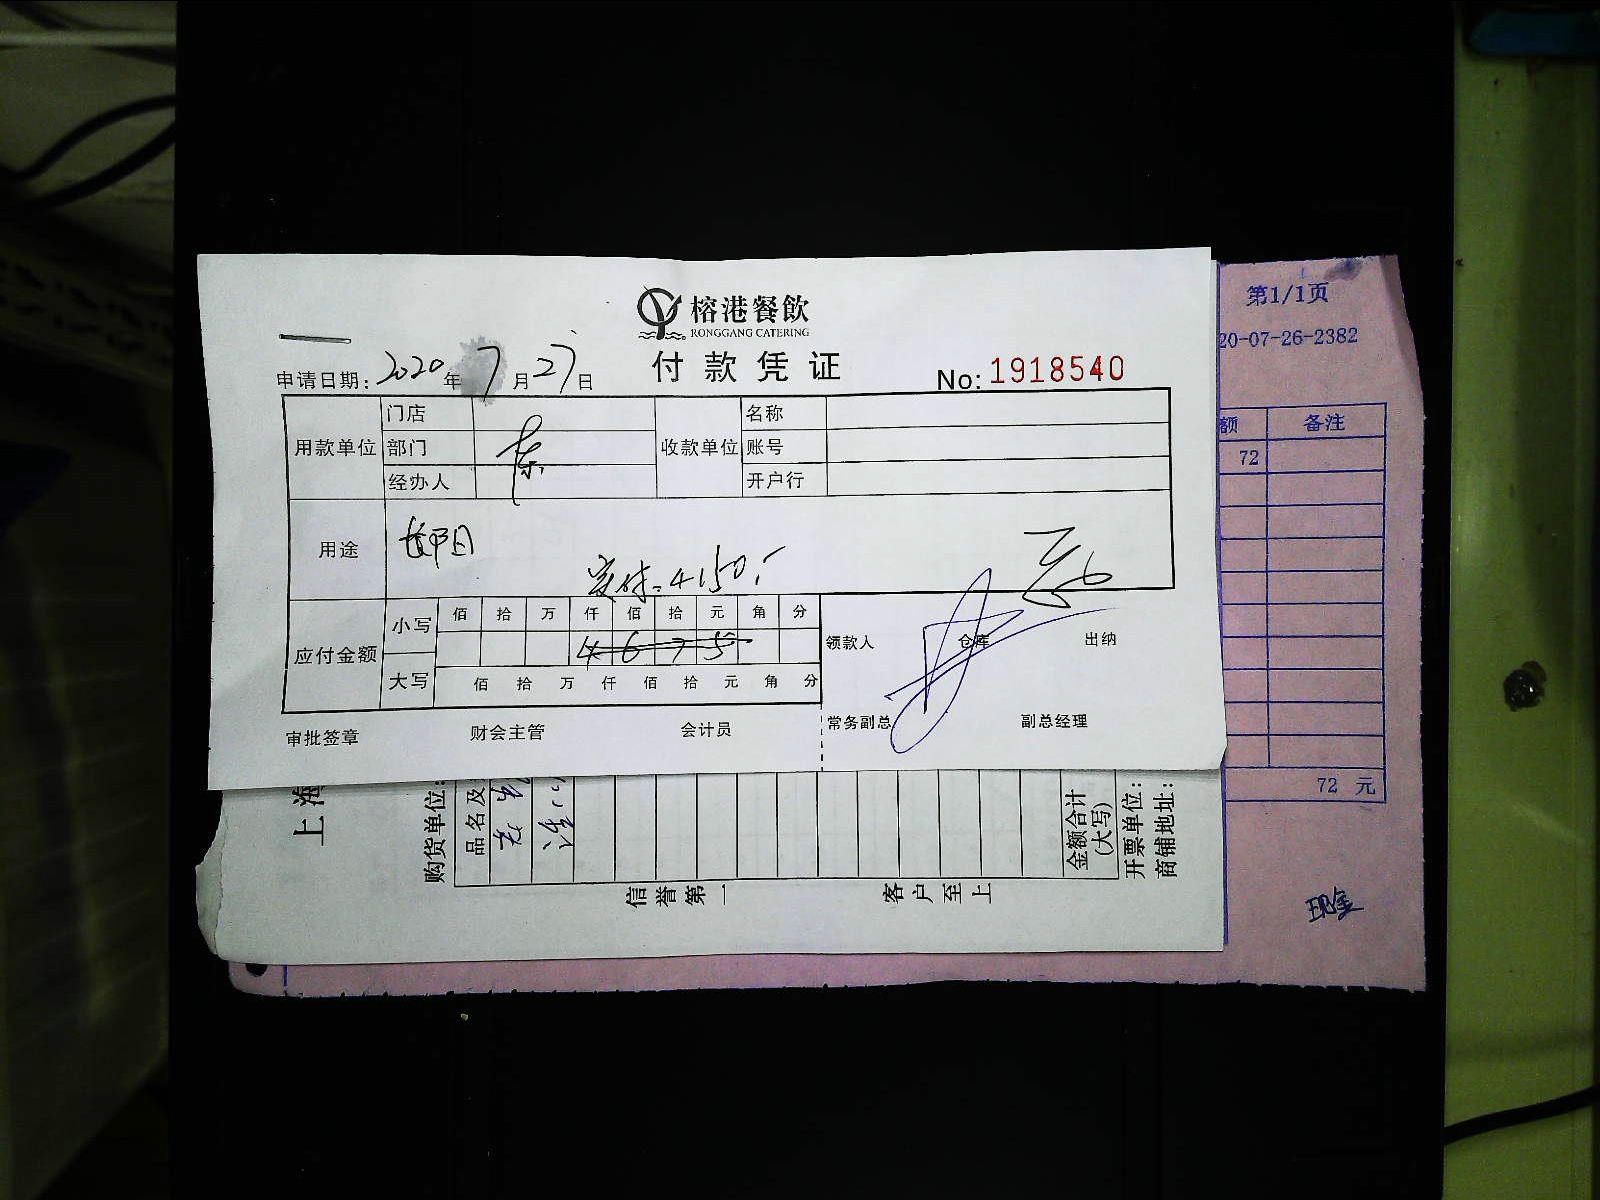 榕港餐飲
RONGGANG CATERING
付款凭证
申请日期: 2020 年 7 月 27 日
No: 1918540
用款单位 门店 收款单位 名称
部门 账号
经办人 开户行
用途
实付: 4150.
应付金额 小写 佰 拾 万 仟 佰 拾 元 角 分
4 6 7 5
大写 佰 拾 万 仟 佰 拾 元 角 分
领款人 仓库 出纳
常务副总 副总经理
审批签章 财会主管 会计员
第1/1页
20-07-26-2382
额 备注
72
72 元
现金
上海
购货单位:
品名及
金额合计
(大写)
开票单位:
商铺地址:
信誉第一 客户至上